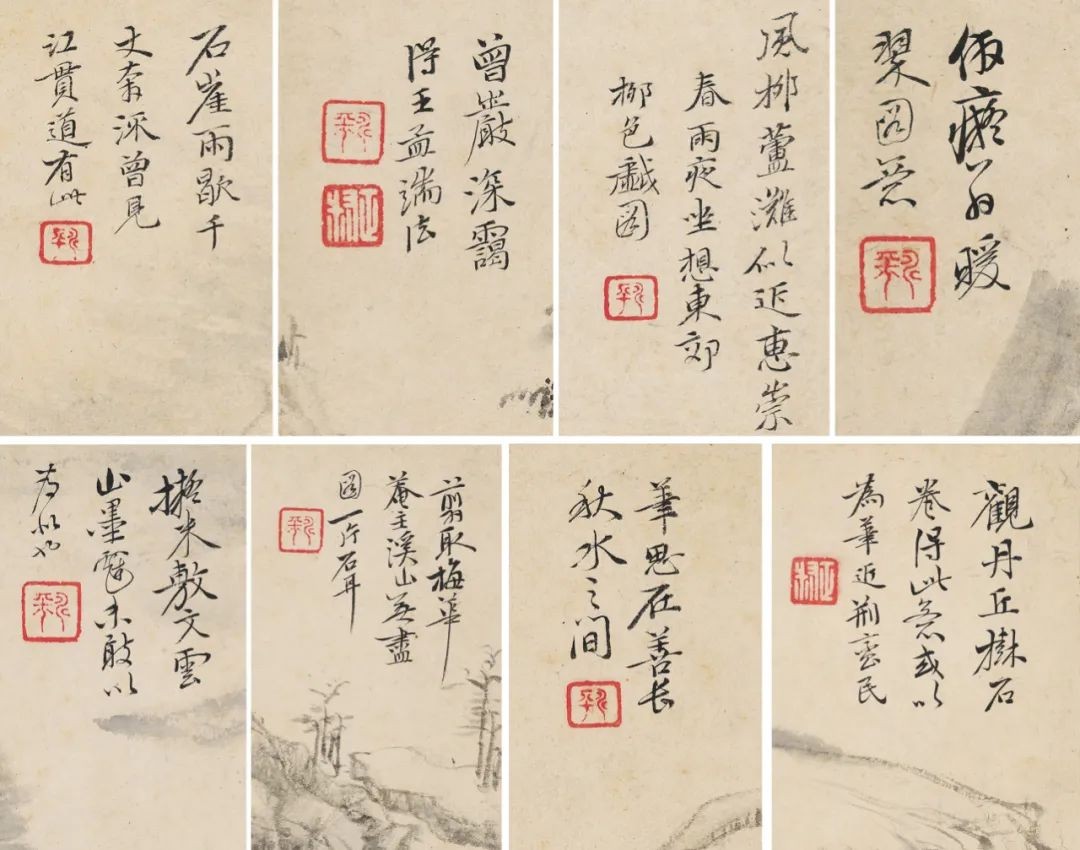 石崖雨歇千
丈奔深曾見
江貫道有此
曾巖深靄
得王孟端法
風柳蘆灘似近惠崇
春雨夜坐想東郊
柳色戲圖
倣癡翁暖
翠圖意
擬米敷文雲
山墨戲未敢以
為似也
剪取梅華
菴主溪山無盡
圖一片石耳
筆思在善長
秋水之間
觀丹丘樹石
卷得此意或以
為筆近荊蠻民